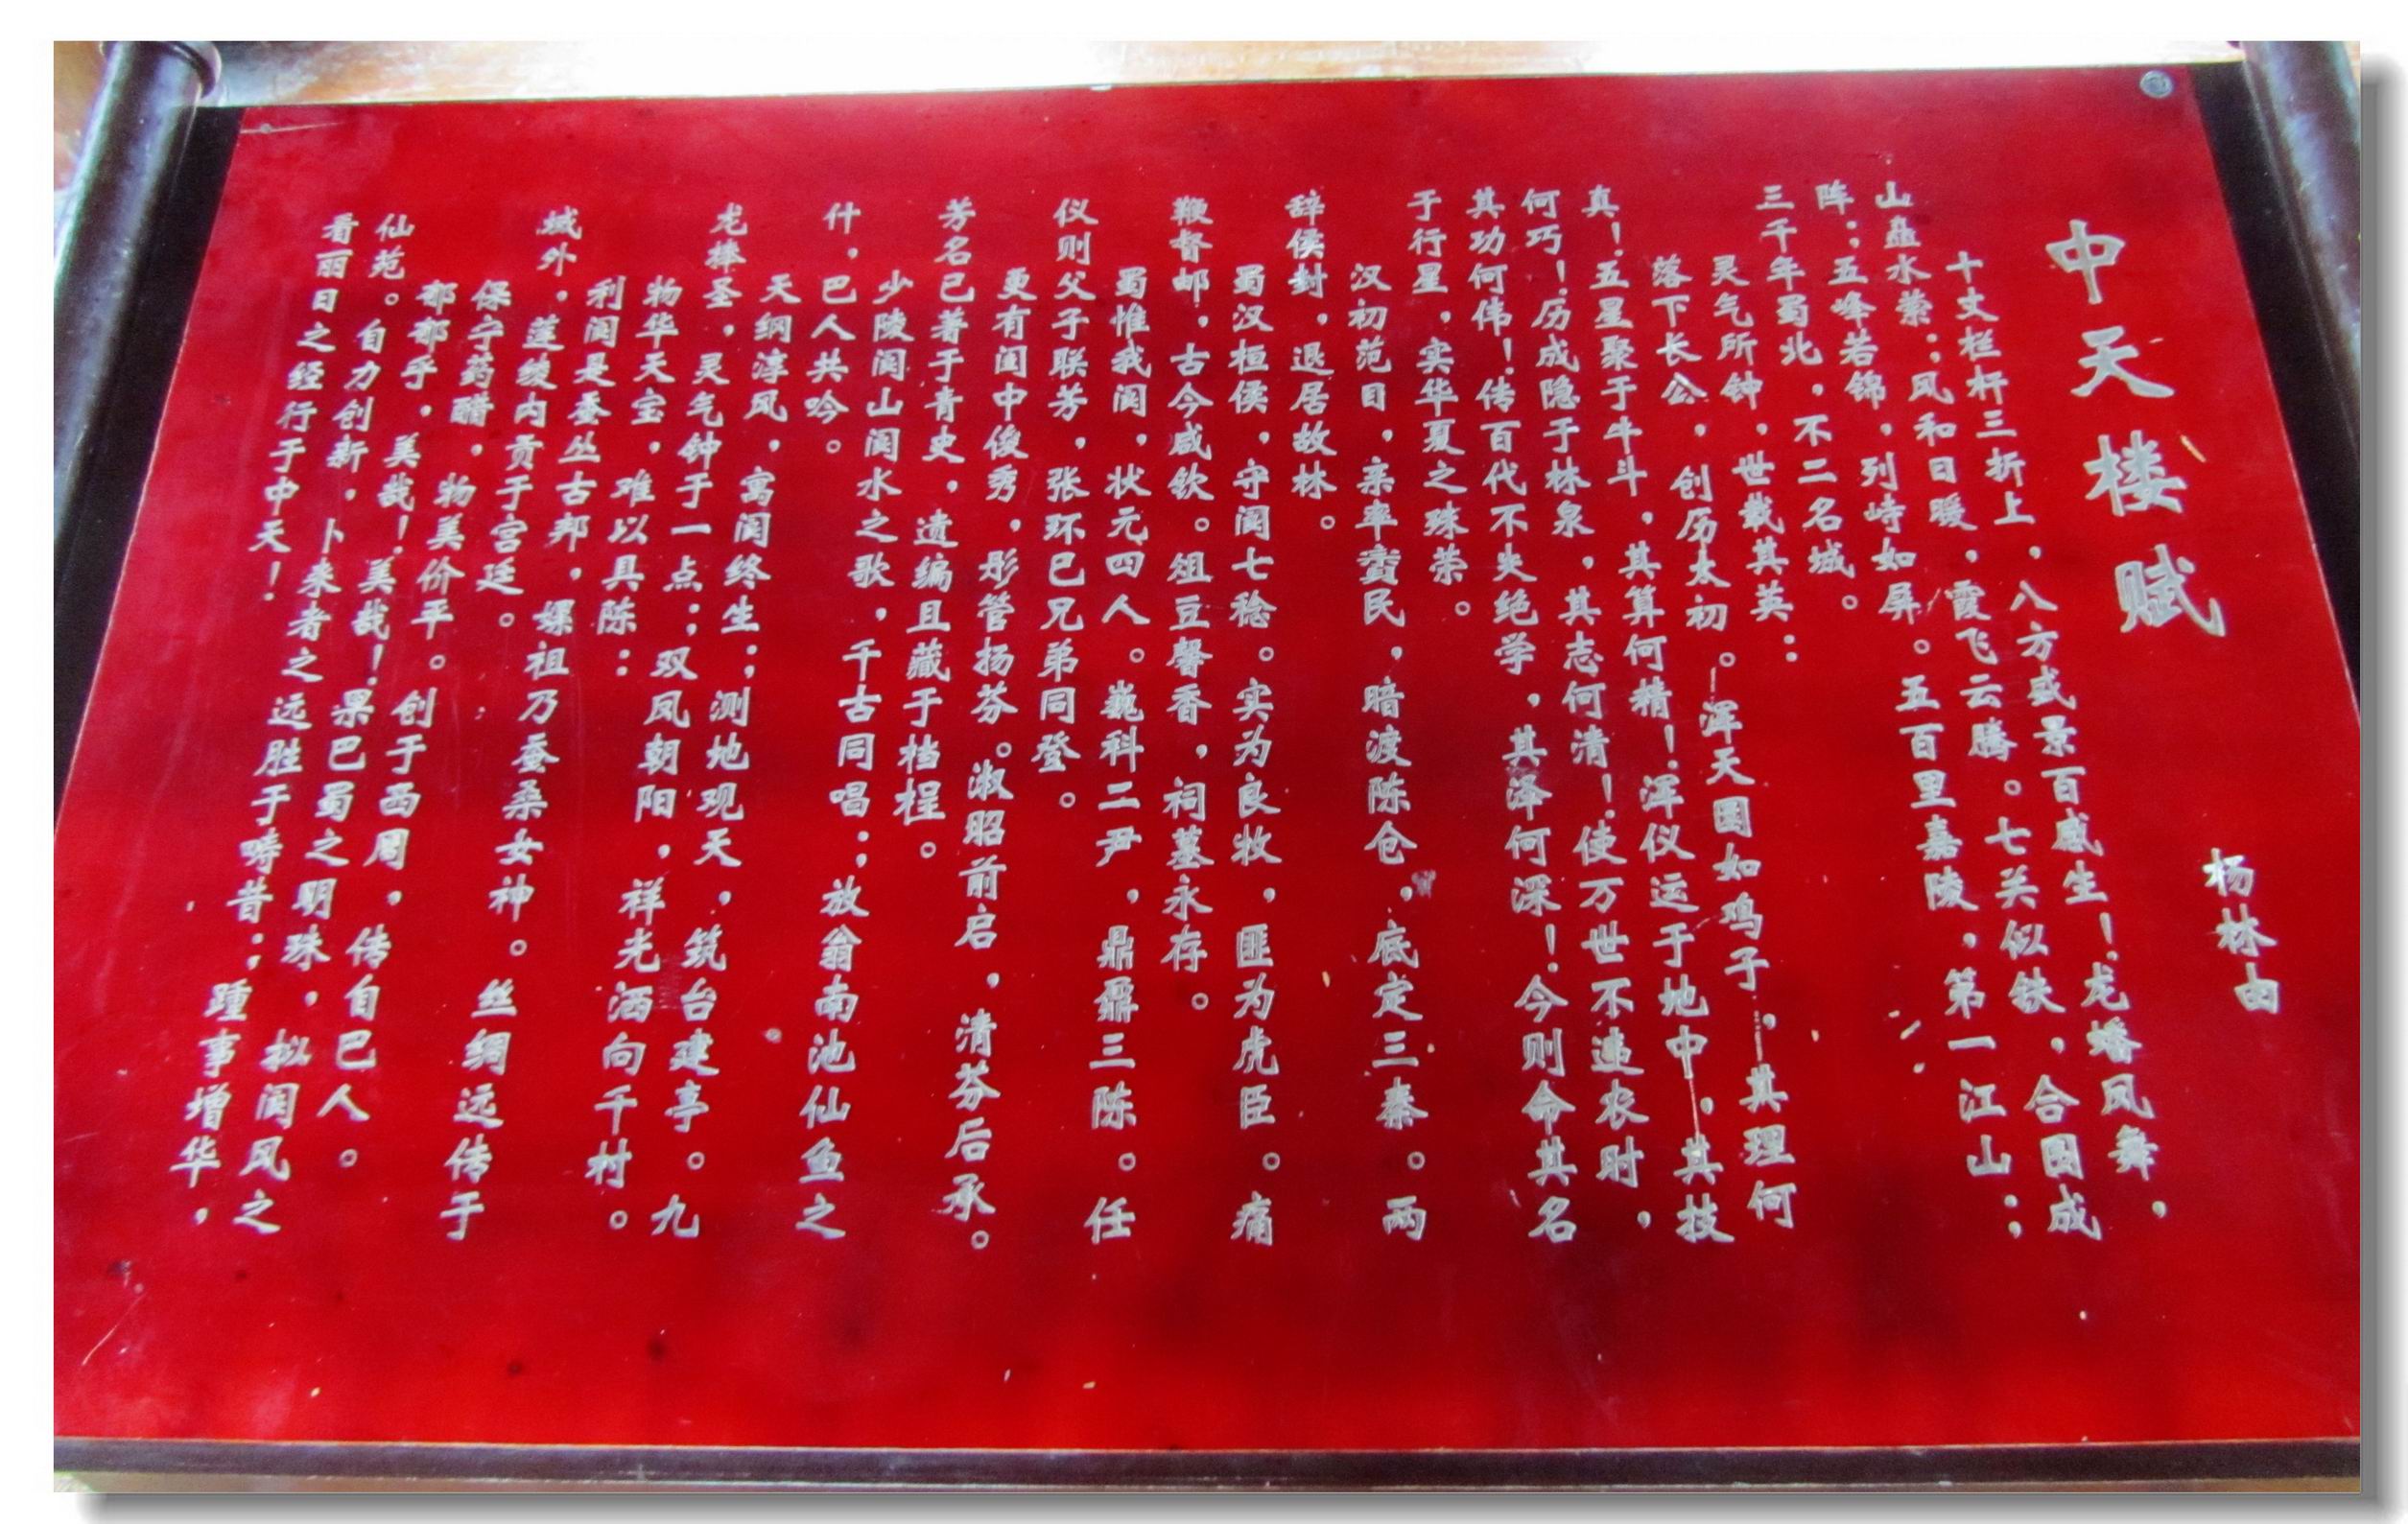 中天楼赋
杨林由
十丈栏杆三折上，八方盛景百感生！龙蟠凤舞，
山矗水萦；风和日暖，霞飞云腾。七关似铁，合围成
阵；五峰若锦，列峙如屏。五百里嘉陵，第一江山；
三千年蜀北，不二名城。
灵气所钟，世载其英：
落下长公，创历太初。浑天圆如鸡子，其理何
真！五星聚于牛斗，其算何精！浑仪运于地中，其技
何巧！历成隐于林泉，其志何清！使万世不违农时，
其功何伟！传百代不失绝学，其泽何深！今则命其名
于行星，实华夏之殊荣。
汉初范目，亲率賨民，暗渡陈仓，底定三秦。两
辞侯封，退居故林。
蜀汉桓侯，守阆七稔。实为良牧，匪为虎臣。痛
鞭督邮，古今咸钦。俎豆馨香，祠墓永存。
蜀惟我阆，状元四人。巍科二尹，鼎鼐三陈。任
仪则父子联芳，张环巳兄弟同登。
更有阆中俊秀，彤管扬芬。淑昭前启，清芬后承。
芳名已著于青史，遗编且藏于档桯。
少陵阆山阆水之歌，千古同唱；放翁南池仙鱼之
什，巴人共吟。
天纲淳风，寓阆终生；测地观天，筑台建亭。九
龙捧圣，灵气钟于一点；双凤朝阳，祥光洒向千村。
物华天宝，难以具陈：
利阆是蚕丛古邦，嫘祖乃蚕桑女神。丝绸远传于
域外，莲绫内贡于宫廷。
保宁药醋，物美价平。创于西周，传自巴人。
郁郁乎，美哉！美哉！果巴蜀之明珠，拟阆风之
仙苑。自力创新，卜来者之远胜于畴昔；踵事增华，
看丽日之经行于中天！